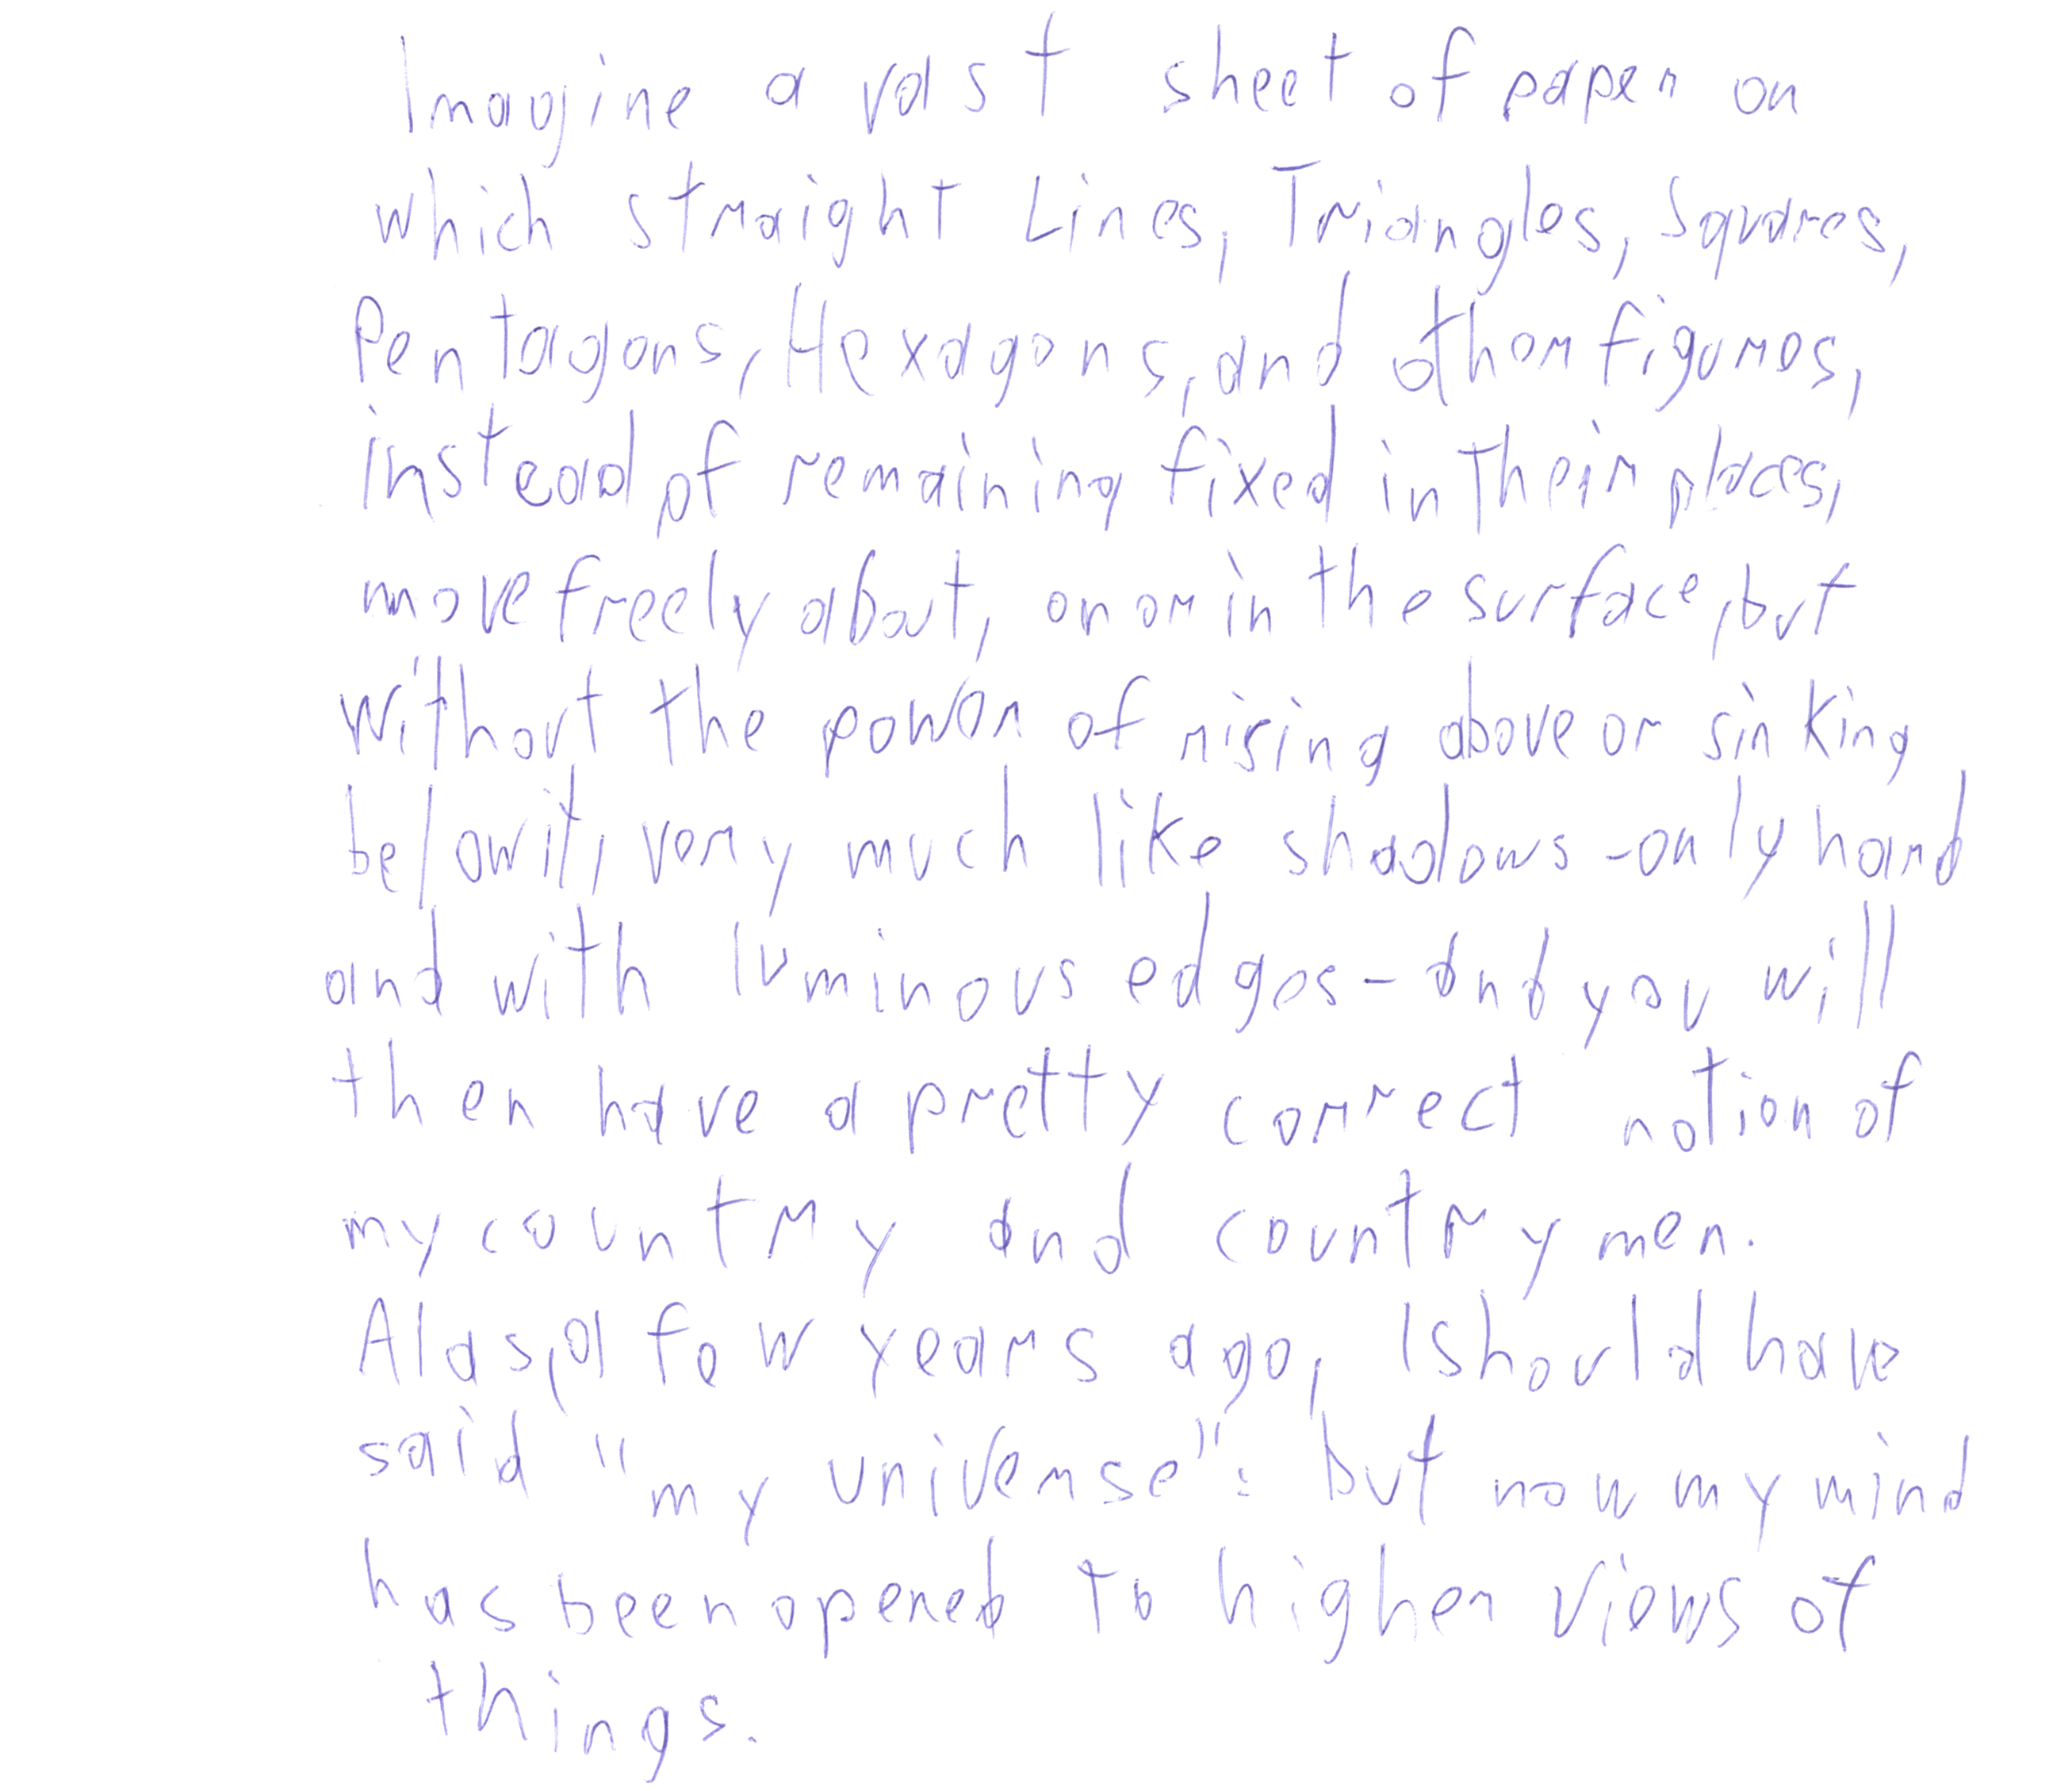 Imagine a vast sheet of paper on
which straight Lines, Triangles, Squares,
Pentagons, Hexagons, and other figures,
instead of remaining fixed in their places,
move freely about, on or in the surface, but
without the power of rising above or sinking
below it, very much like shadows - only hard
and with luminous edges - and you will
then have a pretty correct notion of
my country and countrymen.
Alas, a few years ago, I should have
said "my universe": but now my mind
has been opened to higher views of
things.